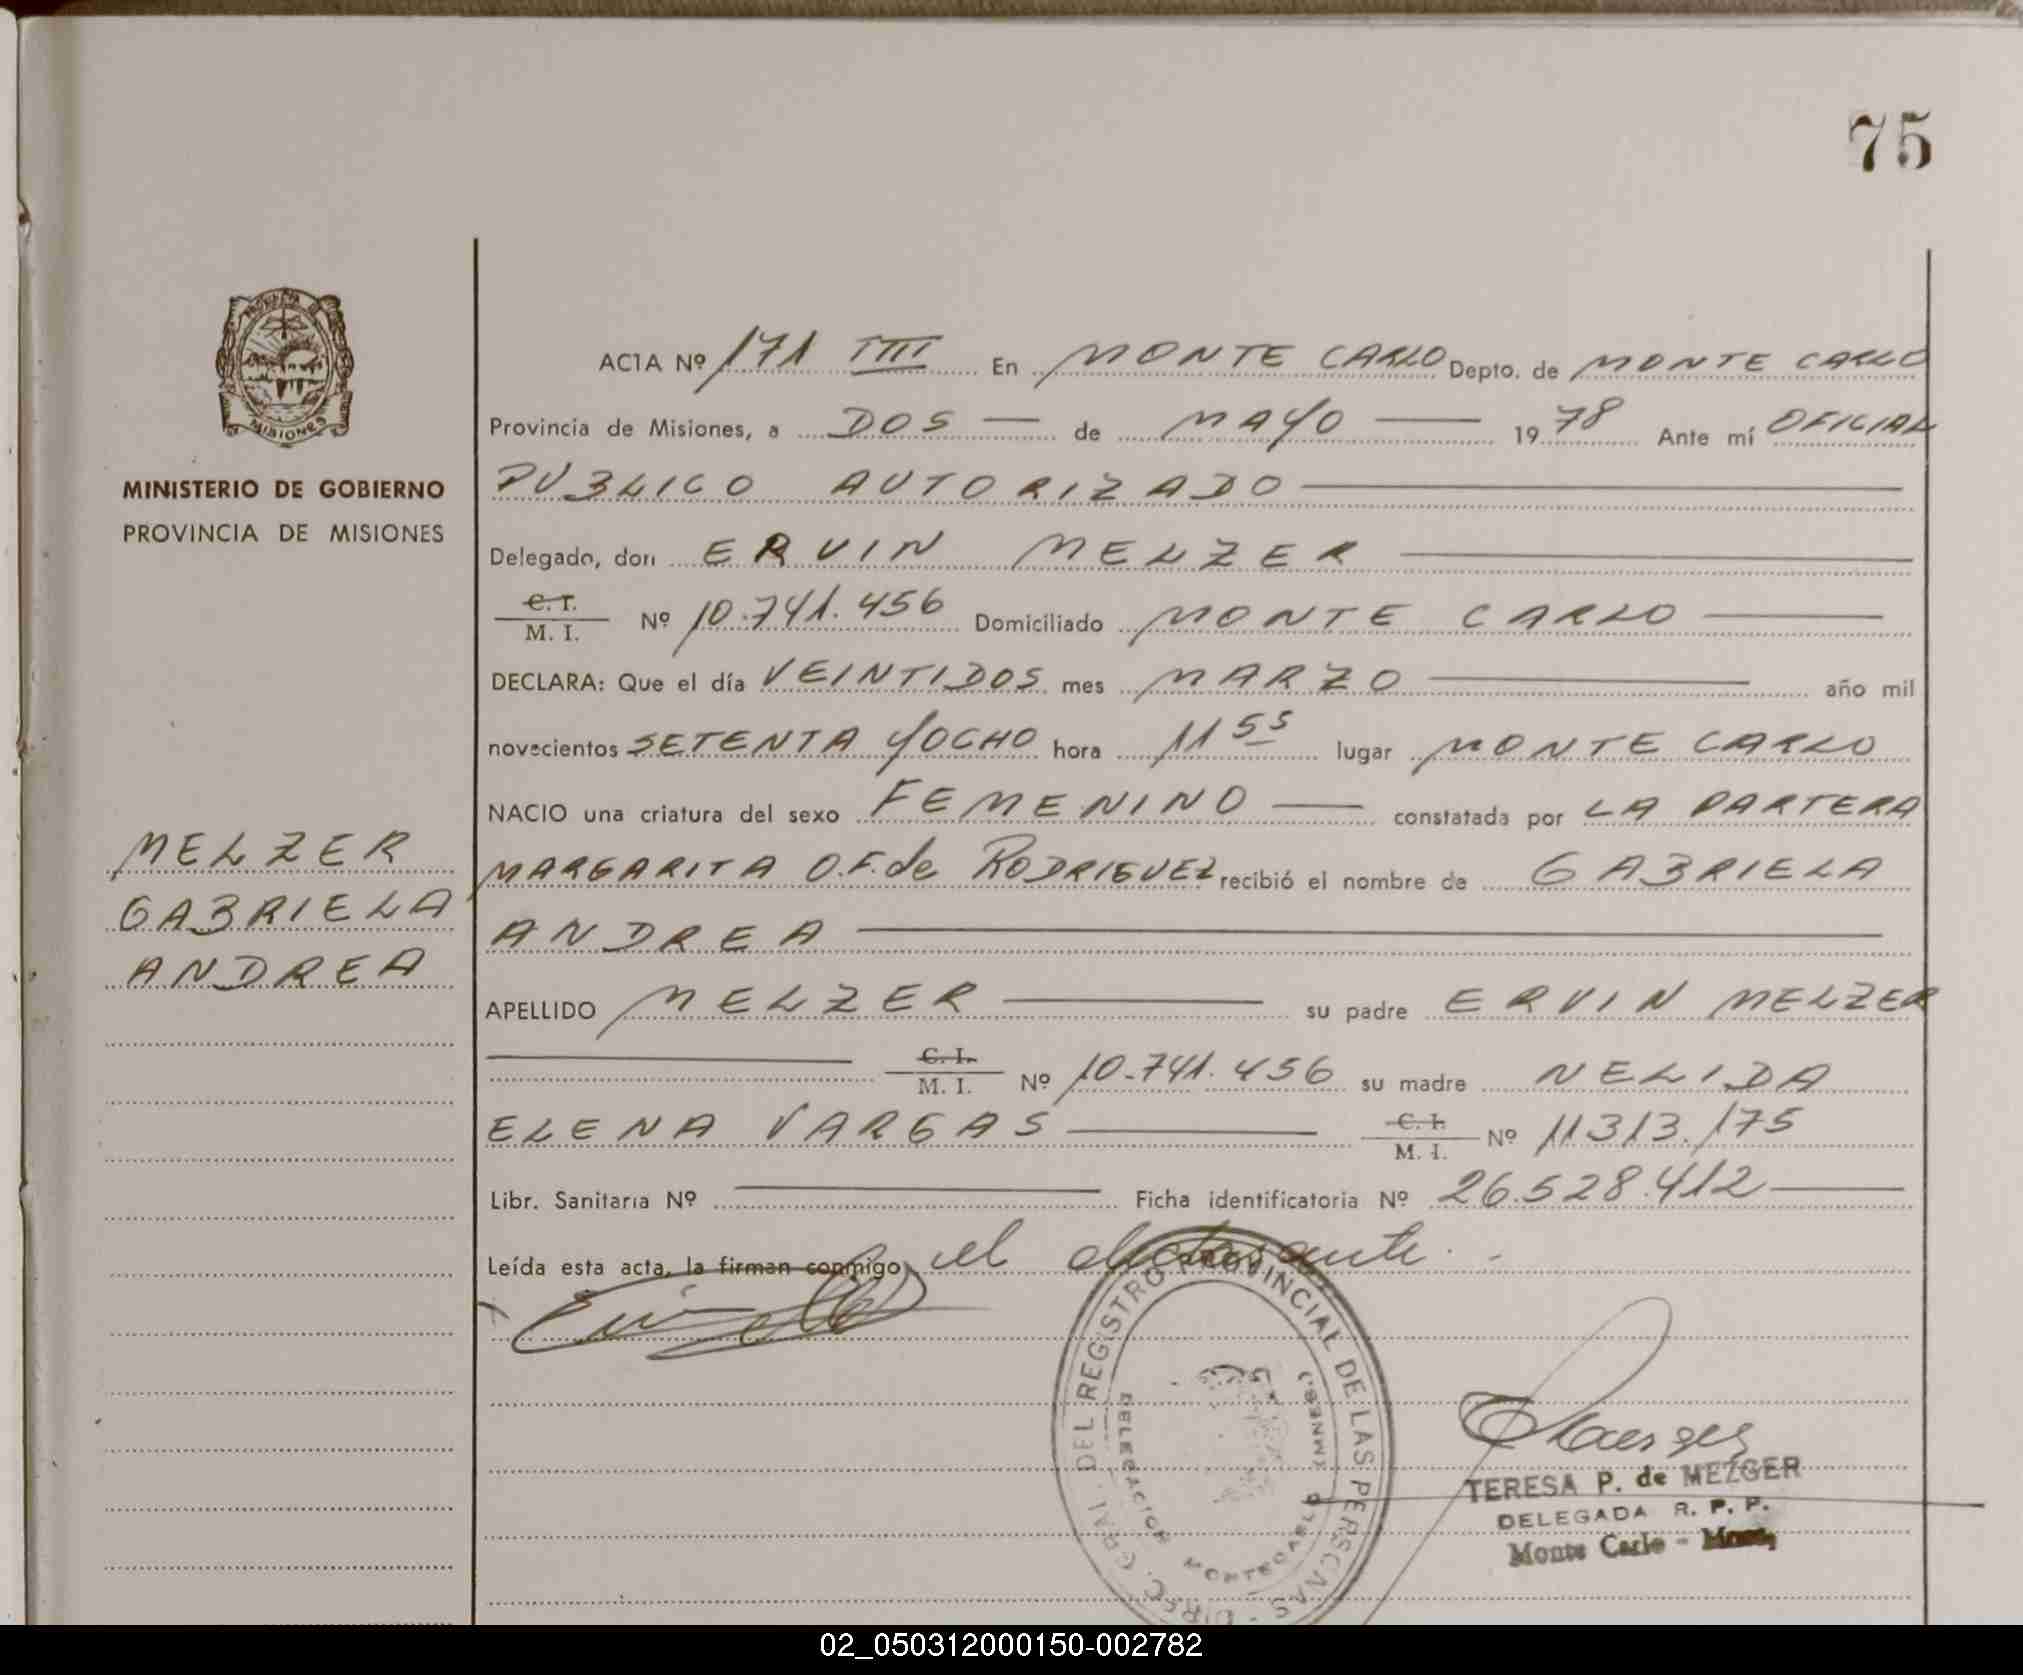 75
PROVINCIA DE
MISIONES
MINISTERIO DE GOBIERNO
PROVINCIA DE MISIONES
MELZER
GABRIELA
ANDREA
ACTA Nº 171 TIII En MONTE CARLO Depto. de MONTE CARLO
Provincia de Misiones, a DOS — de MAYO — 1978 Ante mí OFICIAL
PUBLICO AUTORIZADO —
Delegado, don ERVIN MELZER —
C. I.
M. I. Nº 10.741.456 Domiciliado MONTE CARLO —
DECLARA: Que el día VEINTIDOS mes MARZO — año mil
novecientos SETENTA YOCHO hora 11 55 lugar MONTE CARLO
NACIO una criatura del sexo FEMENINO — constatada por LA PARTERA
MARGARITA O.F. de RODRIGUEZ recibió el nombre de GABRIELA
ANDREA —
APELLIDO MELZER — su padre ERVIN MELZER
— C. I.
M. I. Nº 10.741.456 su madre NELIDA
ELENA VARGAS — C. I.
M. I. Nº 11313.175
Libr. Sanitaria Nº — Ficha identificatoria Nº 26.528.412 —
Leída esta acta, la firman conmigo el declarante.
DIREC. GRAL. DEL REGISTRO PROVINCIAL DE LAS PERSONAS
DELEGACION MONTECARLO (MNES.)
TERESA P. de MEZGER
DELEGADA R. P. P.
Monte Carlo - Mnes.
02_050312000150-002782